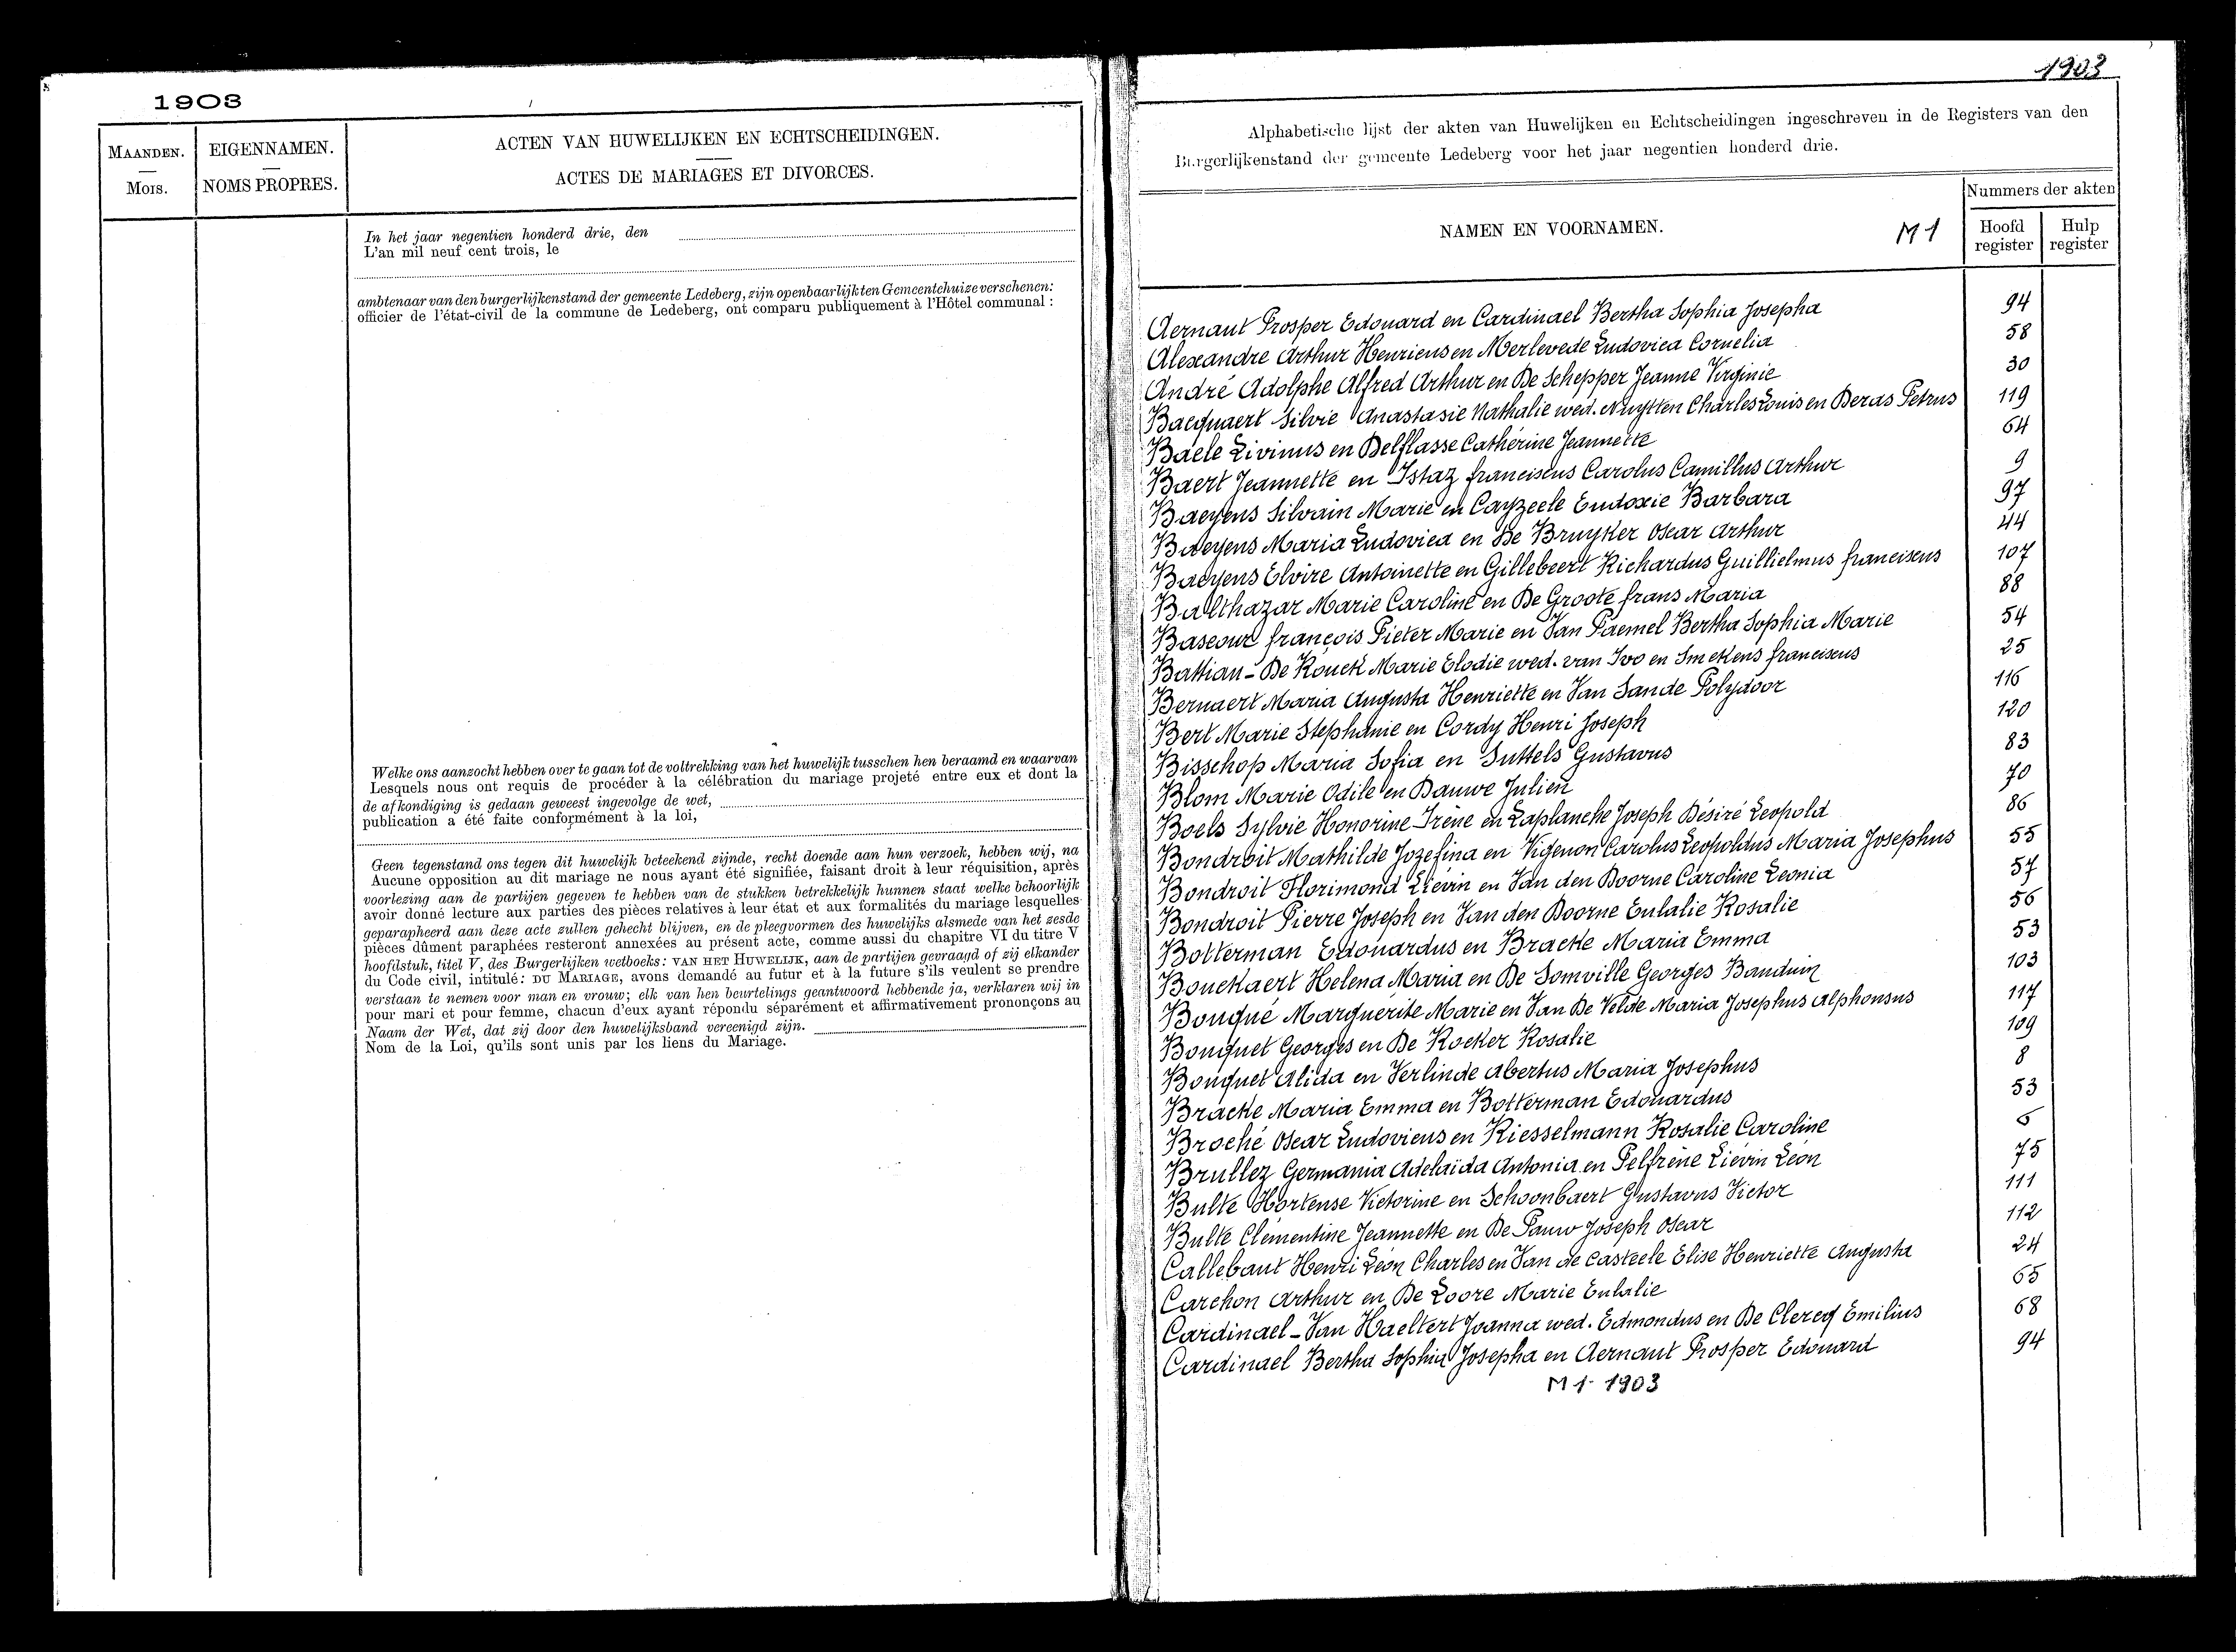 1903
MAANDEN.
MOIS.
EIGENNAMEN.
NOMS PROPRES.
ACTEN VAN HUWELIJKEN EN ECHTSCHEIDINGEN.
ACTES DE MARIAGES ET DIVORCES.
In het jaar negentien honderd drie, den
L'an mil neuf cent trois, le
ambtenaar van den burgerlijkenstand der gemeente Ledeberg, zijn openbaarlijk ten Gemeentehuize verschenen:
officier de l'état-civil de la commune de Ledeberg, ont comparu publiquement à l'Hôtel communal :
Welke ons aanzocht hebben over te gaan tot de voltrekking van het huwelijk tusschen hen beraamd en waarvan
Lesquels nous ont requis de procéder à la célébration du mariage projeté entre eux et dont la
de afkondiging is gedaan geweest ingevolge de wet,
publication a été faite conformément à la loi,
Geen tegenstand ons tegen dit huwelijk beteekend zijnde, recht doende aan hun verzoek, hebben wij, na
Aucune opposition au dit mariage ne nous ayant été signifiée, faisant droit à leur réquisition, après
voorlezing aan de partijen gegeven te hebben van de stukken betrekkelijk hunnen staat welke behoorlijk
avoir donné lecture aux parties des pièces relatives à leur état et aux formalités du mariage lesquelles
geparapheerd aan deze acte zullen gehecht blijven, en de pleegvormen des huwelijks alsmede van het zesde
pièces dûment paraphées resteront annexées au présent acte, comme aussi du chapitre VI du titre V
hoofdstuk, titel V, des Burgerlijken wetboeks: VAN HET HUWELIJK, aan de partijen gevraagd of zij elkander
du Code civil, intitulé: DU MARIAGE, avons demandé au futur et à la future s'ils veulent se prendre
verstaan te nemen voor man en vrouw; elk van hen beurtelings geantwoord hebbende ja, verklaren wij in
pour mari et pour femme, chacun d'eux ayant répondu séparément et affirmativement prononçons au
Naam der Wet, dat zij door den huwelijksband vereenigd zijn.
Nom de la Loi, qu'ils sont unis par les liens du Mariage.
1903
Alphabetische lijst der akten van Huwelijken en Echtscheidingen ingeschreven in de Registers van den
Burgerlijkenstand der gemeente Ledeberg voor het jaar negentien honderd drie.
NAMEN EN VOORNAMEN.
M 1
Nummers der akten
Hoofd register
Hulp register
Aernaut Prosper Edouard en Cardinael Bertha Sophia Josepha 94
Alexandre Arthur Henricus en Merlevede Ludovica Cornelia 58
André Adolphe Alfred Arthur en De Schepper Jeanne Virginie 30
Bacquaert Silvie Anastasie Nathalie wed. Nuytten Charles Louis en Deras Petrus 119
Baele Livinus en Delflasse Cathérine Jeannette 64
Baert Jeannette en Istaz franciscus Carolus Camillus Arthur 9
Baeyens Silvain Marie en Cayzeele Eudoxie Barbara 97
Baeyens Maria Ludovica en De Bruyker Oscar Arthur 44
Baeyens Elvire Antoinette en Gillebeert Richardus Guillielmus franciscus 107
Balthazar Marie Caroline en De Groote frans Maria 88
Bascour françois Pieter Marie en Van Paemel Bertha Sophia Marie 54
Battiau - De Rouck Marie Elodie wed. van Ivo en Smekens franciscus 25
Bernaert Maria Augusta Henriette en Van Sande Polydoor 116
Bert Marie Stephanie en Cordy Henri Joseph 120
Bisschop Maria Sofia en Suttels Gustavus 83
Blom Marie Odile en Dauwe Julien 70
Boels Sylvie Honorine Irène en Laplanche Joseph Désiré Leopold 86
Bondroit Mathilde Jozefina en Vigenon Carolus Leopoldus Maria Josephus 55
Bondroit Florimond Liévin en Van den Doorne Caroline Leonia 57
Bondroit Pierre Joseph en Van den Doorne Eulalie Rosalie 56
Botterman Edouardus en Bracke Maria Emma 53
Bouckaert Helena Maria en De Somville Georges Bauduin 103
Bouqué Marguérite Marie en Van De Velde Maria Josephus Alphonsus 117
Bouquet Georges en De Rocker Rosalie 109
Bouquet Alida en Verlinde Abertus Maria Josephus 8
Bracke Maria Emma en Botterman Edouardus 53
Broché Oscar Ludovicus en Riesselmann Rosalie Caroline 6
Brullez Germania Adelaïda Antonia en Pelfrène Liévin Léon 75
Bulte Hortense Victorine en Schoonbaert Gustavus Victor 111
Bulte Clémentine Jeannette en De Pauw Joseph Oscar 112
Callebaut Henri Léon Charles en Van de Casteele Elise Henriette Augusta 24
Carchon Arthur en De Loore Marie Eulalie 65
Cardinael - Van Haeltert Joanna wed. Edmondus en De Clercq Emilius 68
Cardinael Bertha Sophia Josepha en Aernaut Prosper Edouard 94
M 1 - 1903